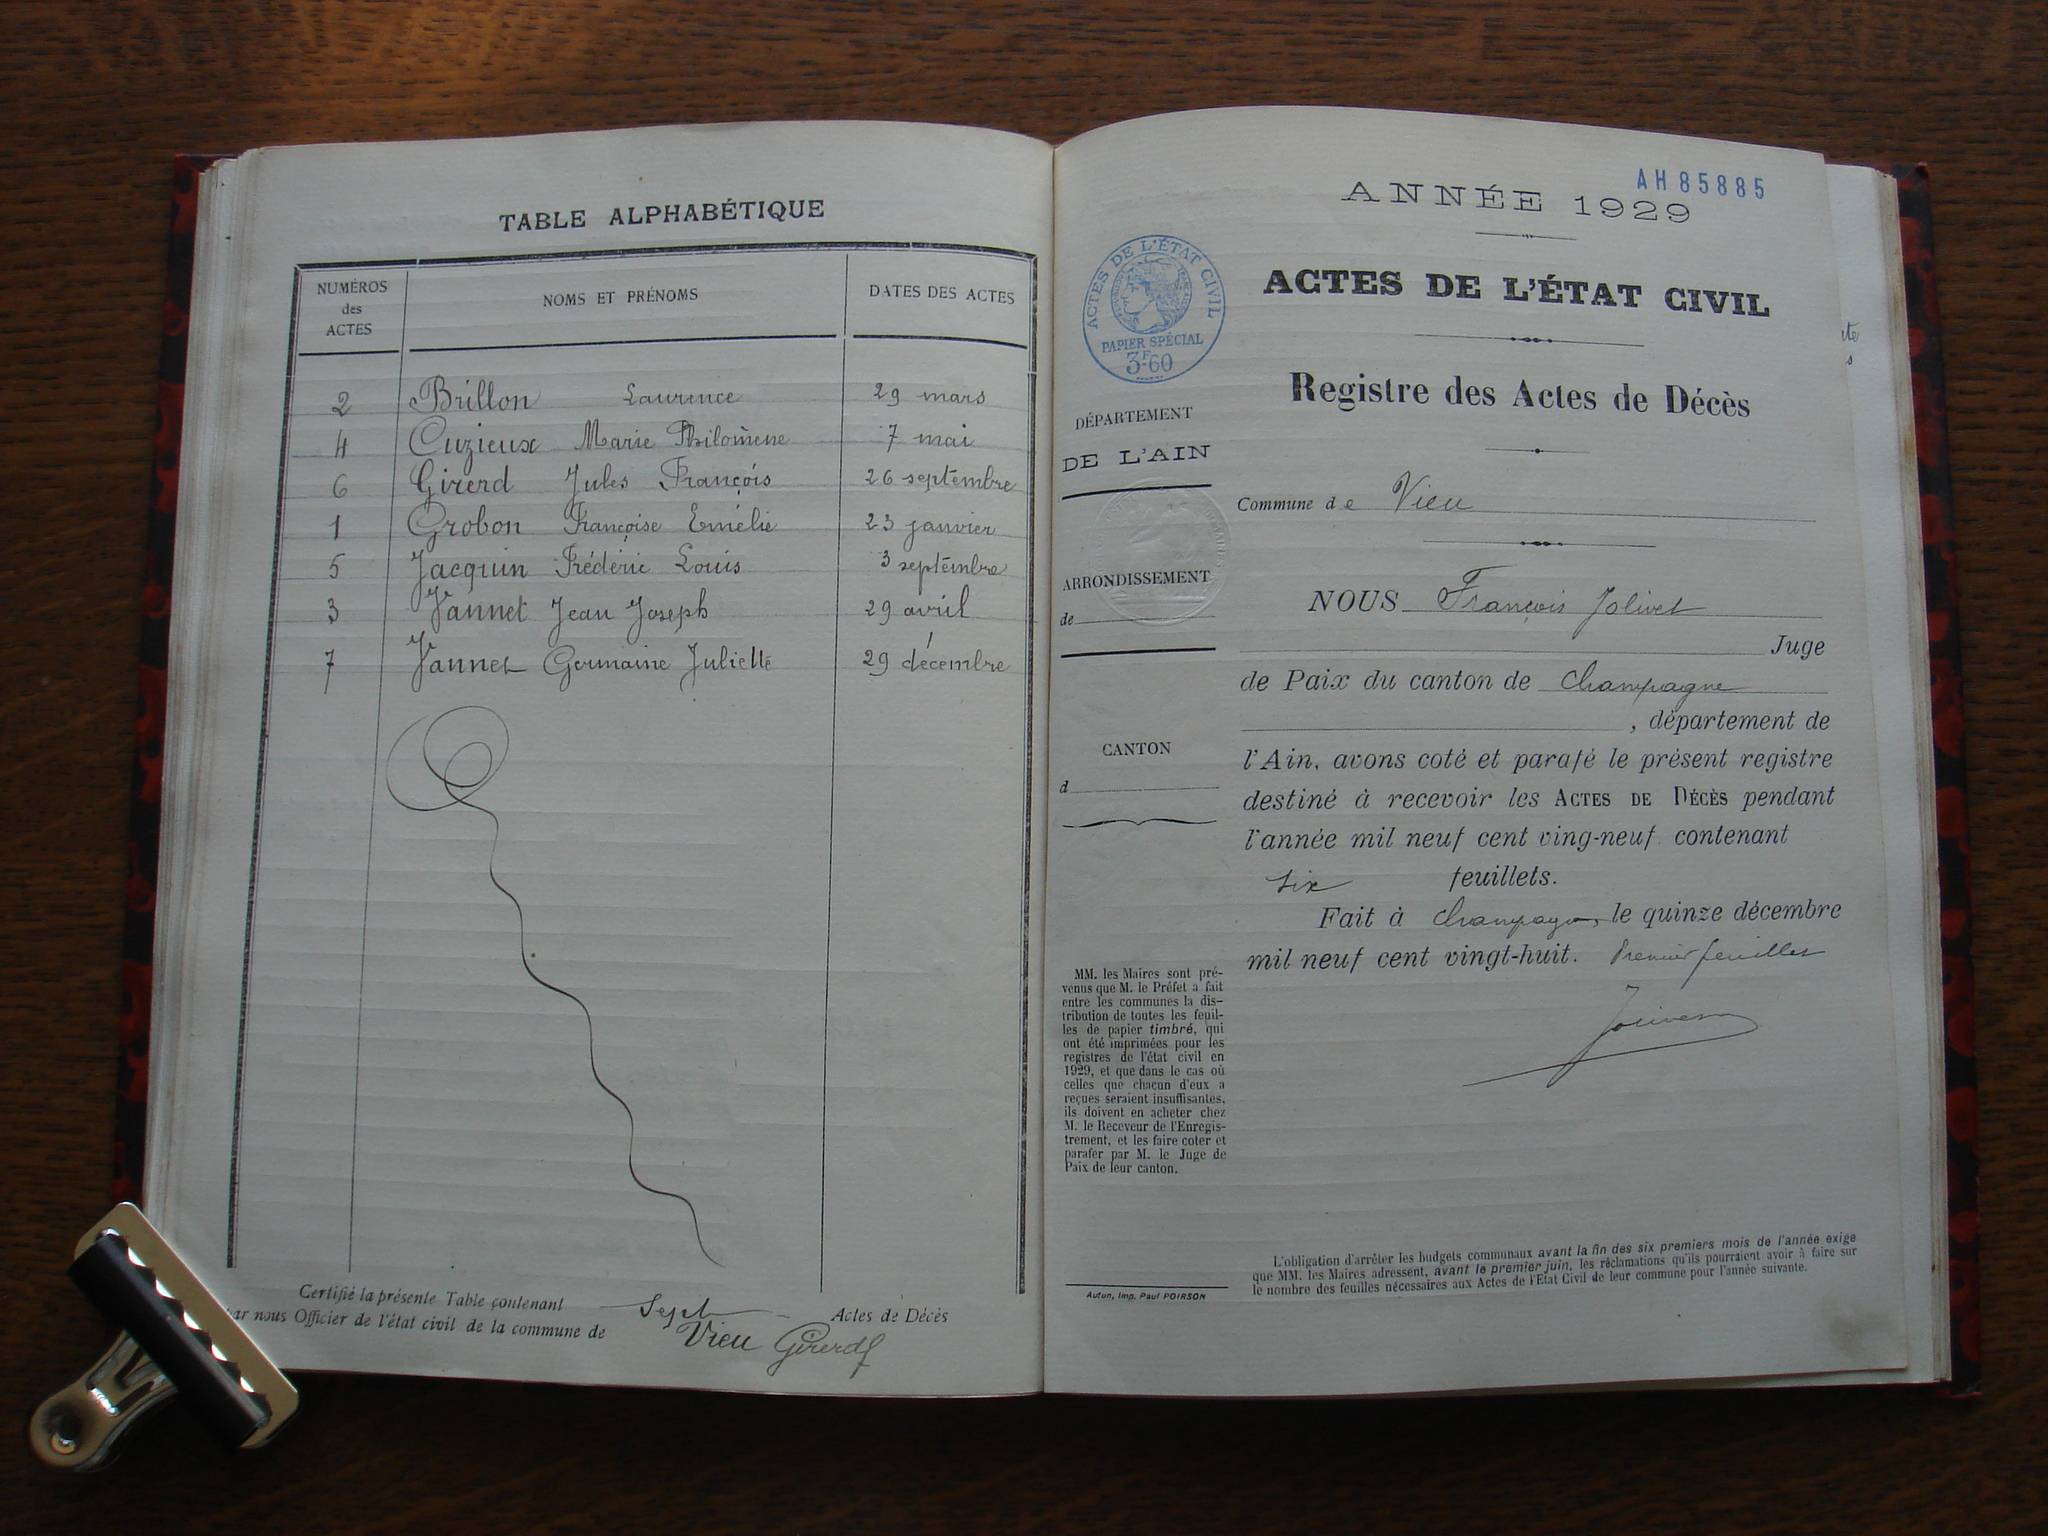 TABLE ALPHABÉTIQUE
NUMÉROS des ACTES
NOMS ET PRÉNOMS
DATES DES ACTES
2 Brillon Laurence 29 mars
4 Cuzieux Marie Philomène 7 mai
6 Girerd Jules François 26 septembre
1 Grobon Françoise Emélie 23 janvier
5 Jacquin Frédéric Louis 3 septembre
3 Vannet Jean Joseph 29 avril
7 Vannet Germaine Juliette 29 décembre
Certifié la présente Table contenant Sept Actes de Décès
par nous Officier de l'état civil de la commune de Vieu Girerd
AH 85885
ANNÉE 1929
ACTES DE L'ÉTAT CIVIL
PAPIER SPÉCIAL
3F60
ACTES DE L'ÉTAT CIVIL
Registre des Actes de Décès
DÉPARTEMENT
DE L'AIN
ARRONDISSEMENT
de
CANTON
d
Commune de Vieu
NOUS François Jolivet
Juge
de Paix du canton de Champagne
, département de
l'Ain, avons coté et parafé le présent registre
destiné à recevoir les ACTES DE DÉCÈS pendant
l'année mil neuf cent ving-neuf contenant
six feuillets.
Fait à Champagne, le quinze décembre
mil neuf cent vingt-huit. Premier feuillet
Jolivet
MM. les Maires sont pré-
venus que M. le Préfet a fait
entre les communes la dis-
tribution de toutes les feuil-
les de papier timbré, qui
ont été imprimées pour les
registres de l'état civil en
1929, et que dans le cas où
celles que chacun d'eux a
reçues seraient insuffisantes,
ils doivent en acheter chez
M. le Receveur de l'Enregis-
trement, et les faire coter et
parafer par M. le Juge de
Paix de leur canton.
Autun, Imp. Paul POIRSON
L'obligation d'arrêter les budgets communaux avant la fin des six premiers mois de l'année exige
que MM. les Maires adressent, avant le premier juin, les réclamations qu'ils pourraient avoir à faire sur
le nombre des feuilles nécessaires aux Actes de l'Etat Civil de leur commune pour l'année suivante.